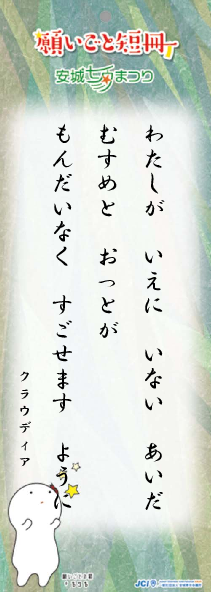 願いごと短冊
安城七夕まつり
わたしが　いえに　いない　あいだ
むすめと　おっとが
もんだいなく　すごせます　ように
クラウディア
JCI